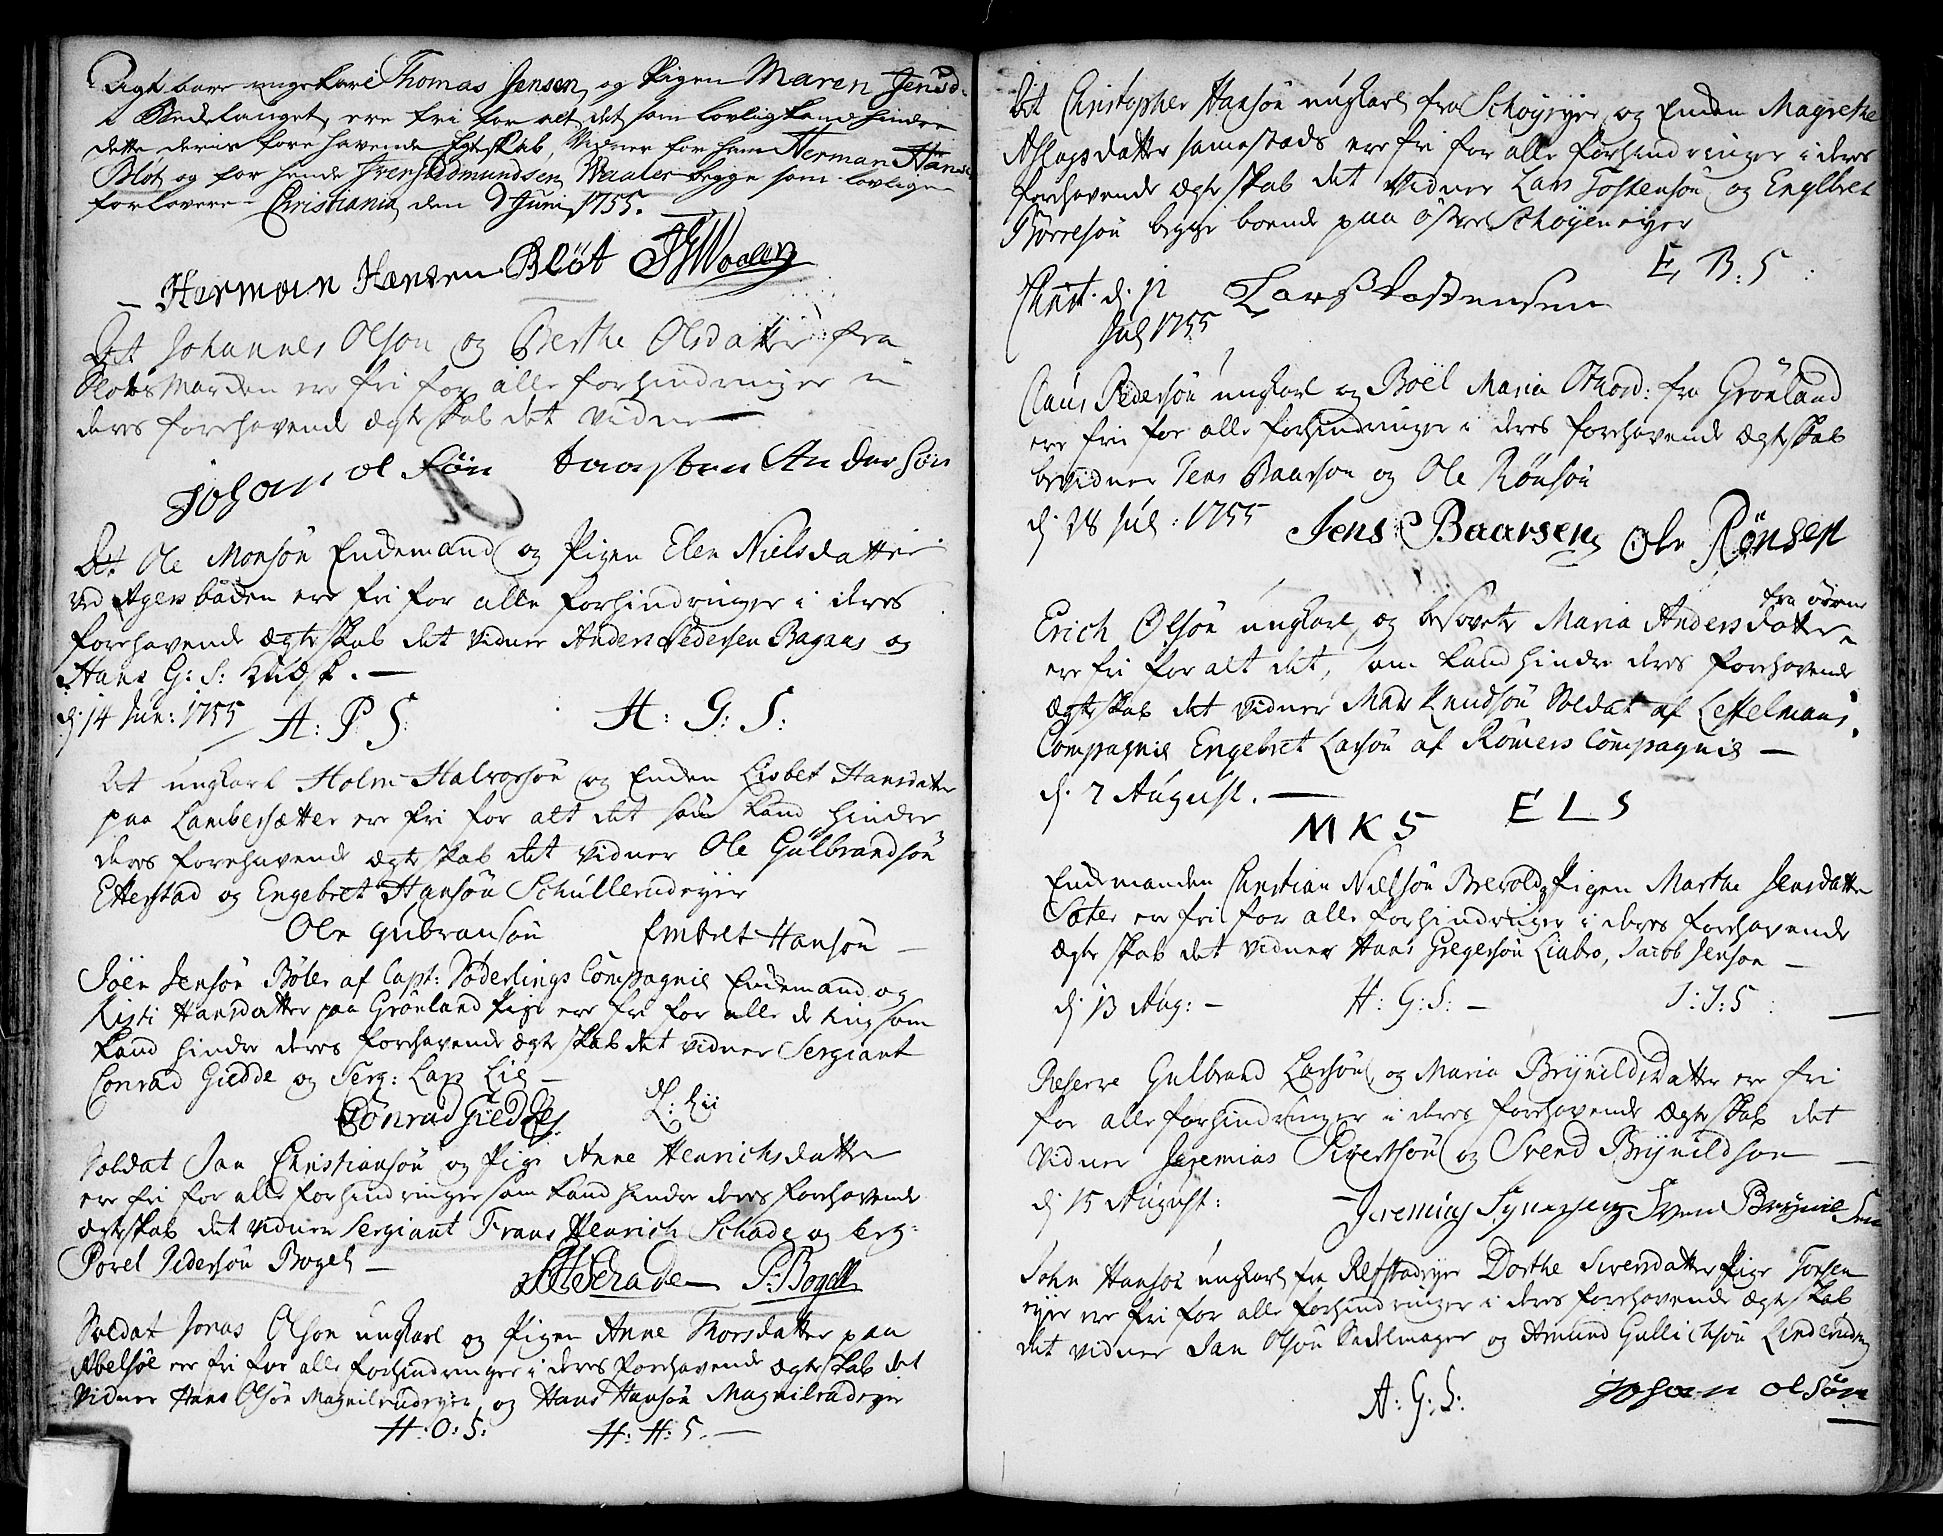 Agtbare ungekarl Thomas Jensen, og Pigen Maren Jensd:
ere fri for alt det som lovlig kand hindre
dette deris forehavende Egteskab, Vidner for ham Herman Hansen
Bløt og for hende Iver Gudmundsen Waaler begge som lovlige
forlovere. Christiania den 9 Juni 1755.
Herman Hansen Bløt JGWaaler
Det Johannes Olson og Berthe Olsdatter fra
Slots Marchen ere fri for alle forhindringer i
deres forehavende ægteskab det vidner
Johan ol søn Taarsten Andersøn
Det Ole Monsøn Enckemand og Pigen Elen Nielsdatter
ved Agersbaden ere fri for alle forhindringer i deres
forehavende ægteskab det vidner Anders Pedersen Bagaas og
Hans G: S:
d. 14 Jun: 1755 A: P: S: H: G: S:
Det ungkarl Holm Halvorsøn og Enken Lisbet Hansdatter
paa Lambersætter ere fri for alt det som kand hindre
deres forehavende ægteskab det vidner Ole Gulbrandsøn
Etterstad og Engebret Hansøn Schullerudeyer
Ole gubransøn Embret Hansøn
Søen Jensøn Bøler af Capt: Søderlings Compagnie Enckemand og
Kisti Hansdatter paa Grønland Pige ere fri for alle de ting som
kand hindre deres forehavende ægteskab det vidner Sergiant
Conrad Giedde og Serg: Lars Lie
Conrad Giedde L: Lii
Soldat Jan Christiansøn og Pige Anne Henrichsdatter
ere fri for alle forhindringer som kand hindre deres forehavende
ægteskab det vidner Sergiant Frans Henrich Schade og Serg:
Povel Pedersøn Bogel
FHSchade P: Bogell
Soldat Jonas Olson ungkarl og Pigen Anne Thorsdatter paa
Abelsøe ere fri for alle forhindringer i deres forehavende ægteskab det
vidner Hans Olsøn Magnilrudeyer, og Hans Hansøn Magnilrudeyer
H: O: S: H: H: S.
Det Christopher Hansøn ungkarl fra Schøyeyer og Enken Magrethe
Aslagsdatter samestads ere fri for alle forhindringer i deres
forehavende ægteskab det vidner Lars Tostensøn og Englbret
Børresøn begge boende paa østre Schøyen eiger
E, B: S:
Christ. d. 12 Lars Tostensen
Jul 1755
Claus Pedersøn ungkarl og Boel Maria Othord: fra Grønland
ere fri for alle forhindringer i deres forehavende ægteskab
bevidner Jens Baarson og Ole Rønsøn
d. 28 Jul: 1755 Jens Baarsen Ole Rønsen
fra øvre
Erich Olsøn ungkarl, og besovete Maria Andersdatter
ere fri for alt det, som kand hindre deres forehavende
ægteskab det vidner Mads Knudsøn Soldat af Lesselmans
Compagnie Engebret Larsøn af Rømers Compagnie
d. 7 August.
M K S E L S
Enckemanden Christian Nielsøn Brevold, Pigen Marthe Jensdatter
Sæter ere fri for alle forhindringer i deres forehavende
ægteskab det vidner Hans Gregersøn Liabro, Jacob Jenson
d. 13 Aug: H: G: S: J: J: S:
Reserve Gulbrand Larsøn og Maria Brynildsdatter ere fri
for alle forhindringer i deres forehavende ægteskab det
vidner Jeremias Sivertsøn og Svend Brynildson
d. 15 August: Jeremias Sven Brynilsen
John Hansøn ungkarl fra Refstadeyer Dorthe Svendsdatter Pige Torsen
eyer ere fri for alle forhindringer i deres forehavende ægteskab
det vidner Jan Olsøn Sadelmager og Amund Gullichsøn Linderuden
A: G: S: Johan olsøn